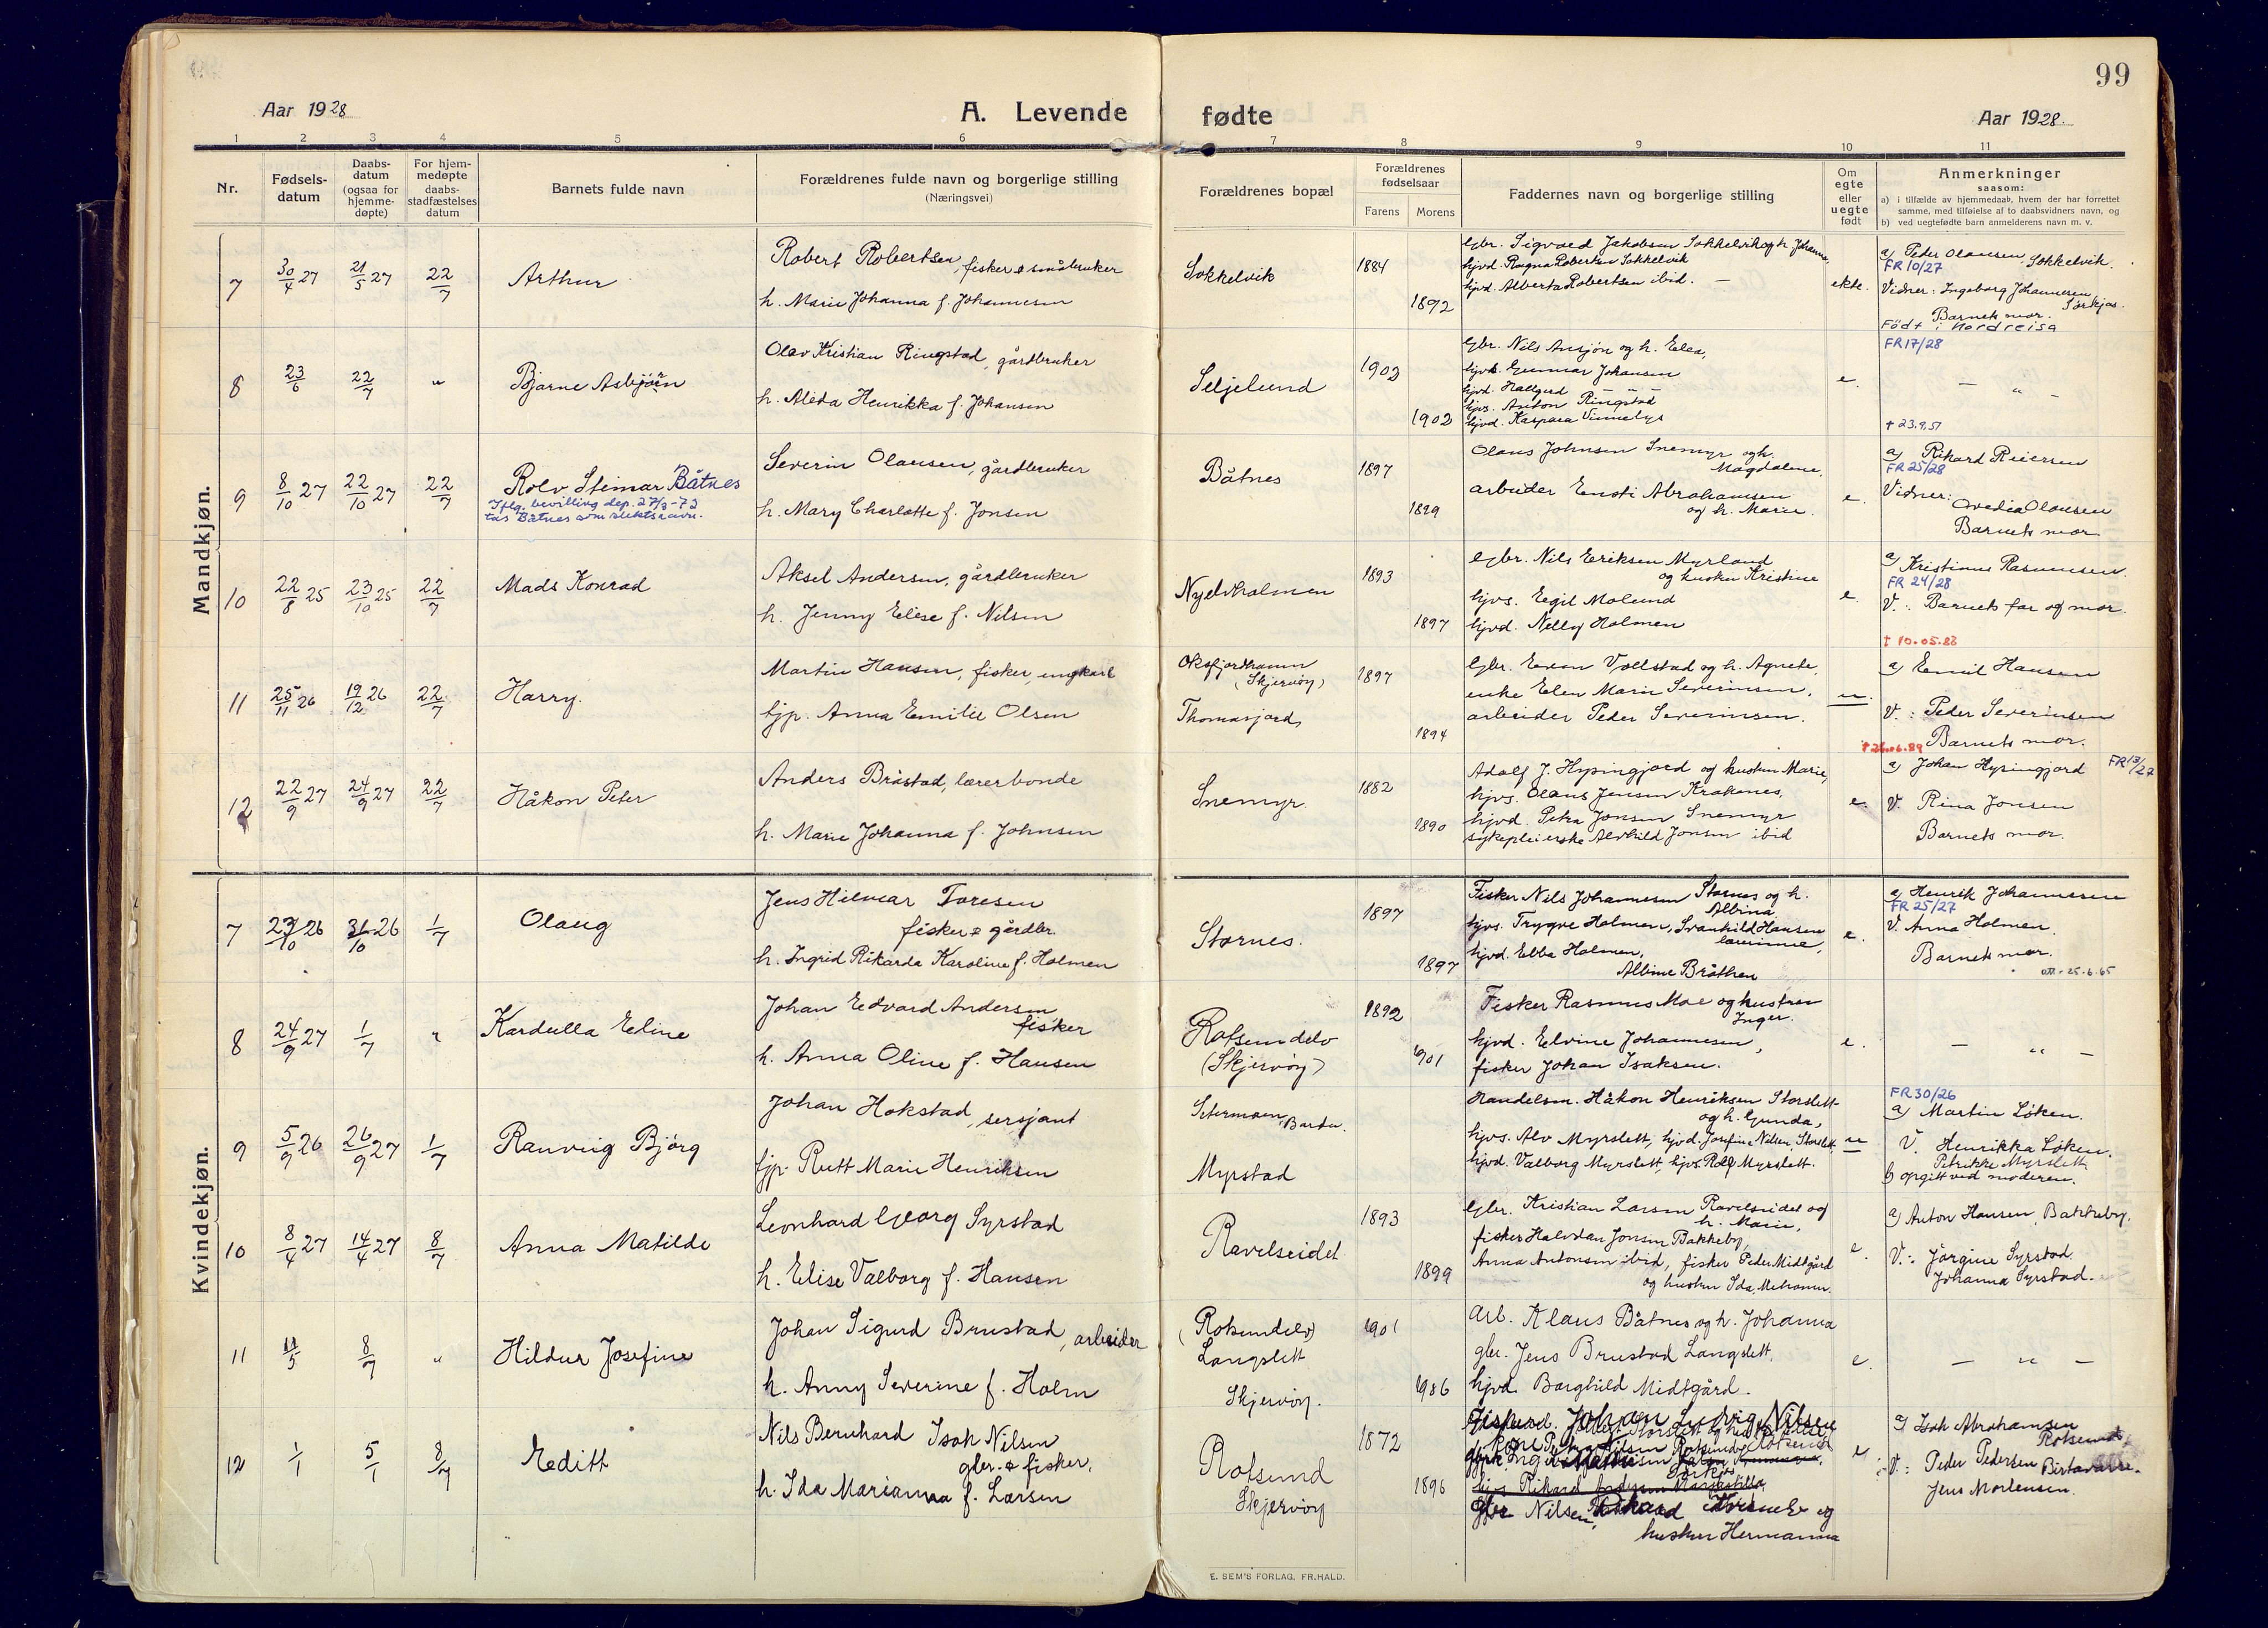 99
Aar 1928
A. Levende
fødte
Aar 1928.
1 2 3 4 5 6 7 8 9 10 11
Nr.
Fødsels-
datum
Daabs-
datum
(ogsaa for
hjemme-
døpte)
For hjem-
medøpte
daabs-
stadfæstelses
datum
Barnets fulde navn
Forældrenes fulde navn og borgerlige stilling
(Næringsvei)
Forældrenes bopæl
Forældrenes
fødselsaar
Farens Morens
Faddernes navn og borgerlige stilling
Om
egte
eller
uegte
født
Anmerkninger
saasom:
a) i tilfælde av hjemmedaab, hvem der har forrettet
samme, med tilføielse af to daabsvidners navn, og
b) ved uegtefødte barn anmelderens navn m. v.
Mandkjøn.
7
30/4 27
21/5 27
22/7
Arthur
Robert Robertsen, fisker & småbruker
h. Marie Johanna f. Johannesen
Sokkelvik
1884
1892
Gbr. Sigvard Jakobsen Sokkelvik og h. Johanna,
hjvd. Ragna Robertsen Sokkelvik
hjvd. Alberta Robertsen ibid. —
ekte.
a) Peder Olausen, Sokkelvik.
FR 10/27
Vidner: Ingeborg Johannesen
Sørkjos.
Barnets mor.
Födt i Nordreisa
8
23/6
22/7
"
Bjarne Asbjørn
Olav Kristian Ringstad, gårdbruker
h. Alida Henrikka f. Johansen
Seljelund
1902
1902
Gbr. Nils Ansjøn og h. Elea,
hjvs. Gunnar Johansen
hjvd. Hallgerd — — —
hjvs. Anton Ringstad
hjvd. Kaspara Vinnelys
e.
FR 17/28
— " —
9
8/10 27
22/10 27
22/7
Rolv Steinar Båtnes
Iflg. bevilling dep. 27/3-72
tas Båtnes som slektsnavn.
Severin Olausen, gårdbruker
h. Mary Charlotte f. Jonsen
Båtnes
1897
1899
Olaus Johnsen Snemyr og h.
Magdalene.
arbeider Ensti Abrahamsen
og h. Marie.
e.
† 23.9.51
a) Rikard Reiersen
FR 25/28
Vidner:
Ovedia Olausen
Barnets mor
10
22/8 25
23/10 25
22/7
Mads Konrad
Aksel Andersen, gårdbruker
h. Jenny Elise f. Nilsen
Nyelvholmen
1893
1897
Gbr. Nils Eriksen Myrland
og husteu Kristine
hjvs. Egil Molund
hjvd. Nelly Holmen
e.
a) Kristinus Rasmussen.
FR 24/28
V.: Barnets far og mor.
11
25/11 26
19/12 26
22/7
Harry.
Martin Hansen, fisker, ungkarl
fjp. Anna Emilie Olsen
Oksfjordhamn
(Skjervøy)
Thomasjord
1897
1894
Gbr. Einon Vollstad og h. Agnete
enke Elen Marie Severinsen,
arbeider Peder Severinsen.
u.
† 10.05.88
a) Emil Hansen
V.: Peder Severinsen
Barnets mor.
12
22/9 27
24/9 27
22/7
Håkon Peter
Anders Bråstad, lærer bonde
h. Marie Johanna f. Johnsen
Snemyr
1882
1890
Adolf J. Hysingjord og hustru Marie,
hjvs. Olaus Jensen Krakenes,
hjvd. Petra Jonsen Snemyr
sykepleierske Alvhild Jonsen ibid
e.
† 26.06.89
a) Johan Hysingjord FR 13/27
V. Rina Jonsen
Barnets mor.
Kvindekjøn.
7
23/10 26
31/10 26
1/7
Olaug
Jens Hilmar Toresen
fisker & gårdbr.
h. Ingrid Rikarda Karoline f. Holmen
Stornes.
1897
1897
Fisker Nils Johannesen Stornes og h.
Albina
hjvs. Trygve Holmen, Svanhild Hansen
lærerinne,
hjvd. Ebba Holmen,
Albine Bråthen
e.
a) Henrik Johannesen
FR 25/27
V. Anna Holmen.
Barnets mor.
att. 25.6.65
8
24/9 27
1/7
"
Kardulla Edine
Johan Edvard Andersen
fisker
h. Anna Oline f. Hansen
Rotsundelv
(Skjervøy)
1892
1901
Fisker Rasmus Moe og hustru
Inger.
hjvd. Elvine Johannesen,
fisker Johan Isaksen.
e.
— " —
9
5/9 26
26/9 27
1/7
Ranveig Bjørg
Johan Hokstad, sersjant
fjp. Rutt Marie Henriksen
Setermoen, Bardu.
Myrstad
Handelsm. Håkon Henriksen Storslett
og h. Gunda,
hjvs. Alv Myrslett, hjvd. Josefine Nilsen Storslett
hjvd. Valborg Myrslett, hjvs. Rolf Myrslett.
u
FR 30/26
a) Martin Løken.
V. Henrikka Løken.
Petrikke Myrslett
b) opgitt ved moderen.
10
8/4 27
14/4 27
8/7
Anna Matilde
Leonhard Georg Syrstad
h. Elise Valborg f. Hansen
Ravelseidet
1893
1899
Gbr. Kristian Larsen Ravelseidet og
h. Marie,
fisker Halvdan Jonsen Bakkeby,
Anna Antonsen ibid, fisker Peder Midtgård
og hustru Ida,
e.
a) Anton Hansen, Bakkeby.
V.: Jørgine Syrstad
Johanna Syrstad.
11
11/5
8/7
"
Hildur Josefine
Johan Sigurd Brustad, arbeider
h. Anny Severine f. Holm
(Rotsundelv)
Langslett
Skjervøy.
1901
1906
Arb. Klaus Båtnes og h. Johanna
gbr. Jens Brustad Langslett,
hjvd. Borghild Midtgård.
e.
— " —
12
1/1
5/1
8/7
Editt
Nils Bernhard Isak Nilsen
gbr. & fisker.
h. Ida Marianna f. Larsen
Rotsund
Skjervøy
1872
1896
Johan Ludvig Nilsen
og
hustru Hermanna
e
a) Isak Abrahamsen
Rotsund
V.: Peder Pedersen Birtavarre.
Jens Mortensen.
E. SEM'S FORLAG, FR.HALD.